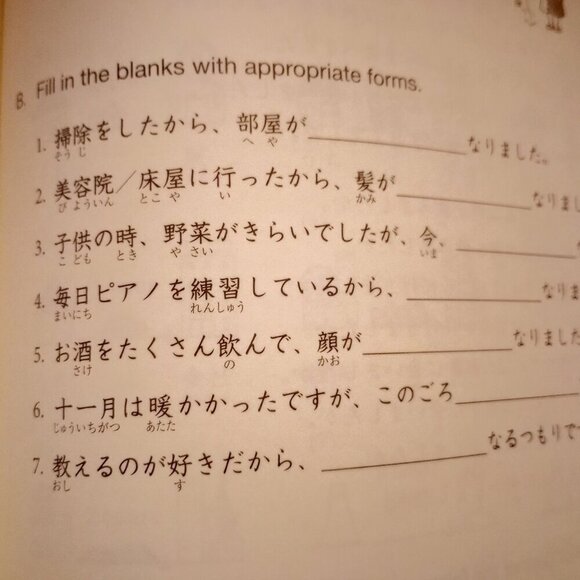 B. Fill in the blanks with appropriate forms.
1. 掃除をしたから、部屋が____________なりました。
そうじ へや
2. 美容院／床屋に行ったから、髪が____________なりまし
びよういん とこや い かみ
3. 子供の時、野菜がきらいでしたが、今、____________
こども とき やさい いま
4. 毎日ピアノを練習しているから、____________なりま
まいにち れんしゅう
5. お酒をたくさん飲んで、顔が____________なりました
さけ の かお
6. 十一月は暖かかったですが、このごろ____________
じゅういちがつ あたた
7. 教えるのが好きだから、____________なるつもりで
おし す